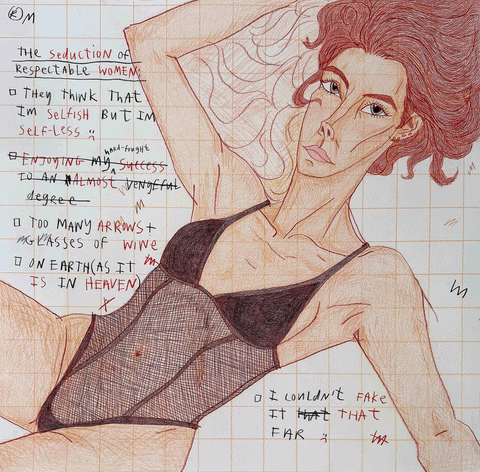 ® M
THE SEDUCTION OF
RESPECTABLE WOMEN:
THEY THINK THAT
IM SELFISH BUT IM
SELF-LESS
hard-fought
ENJOYING MY SUCCESS
TO AN ALMOST VENGEFUL
degree
TOO MANY ARROWS +
GLASSES OF WINE
ON EARTH (AS IT
IS IN HEAVEN)
I COULDN'T FAKE
IT THAT THAT
FAR